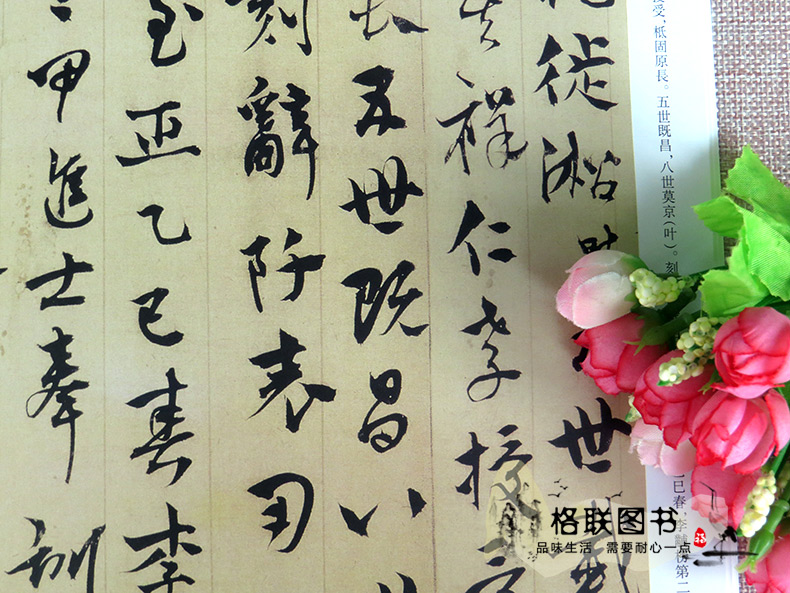 受，柢固原長。五世既昌，八世莫京（叶）。刻
巳春，李
第二
徙淞 世
祥仁孝授
長五世既昌八
刻辭阡表用
至正乙巳春李
甲進士奉訓
格联图书
品味生活 需要耐心一点